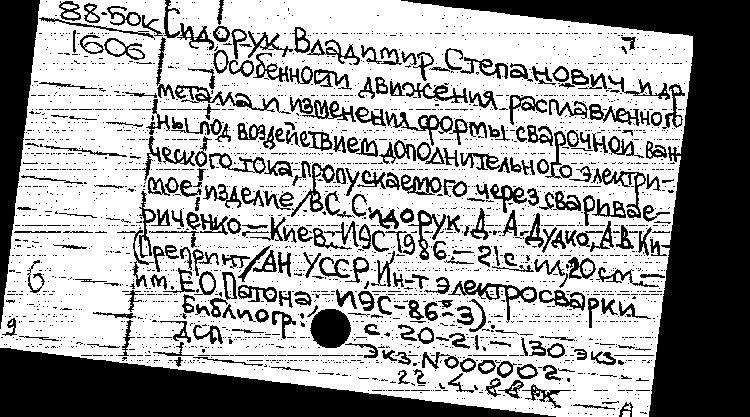 88-50к
1606
Сидорук, Владимир Степанович и др
Особенности движения расплавленного
металла и изменения формы сварочной ван-
ны под воздействием дополнительного электри-
ческого тока, пропускаемого через сваривае-
мое изделие/В.С. Сидорук, Д.А. Дудко, А.В. Ки-
риченко.—Киев: ИЭС, 1986.—21с.: ил, 20см.—
(Препринт/АН УССР, Ин-т электросварки
им. Е.О. Патона; ИЭС-86-3).
Библиогр.: с. 20-21.—130 экз.
ДСП. экз. N000002.
22.4.88 РК
6
9
А